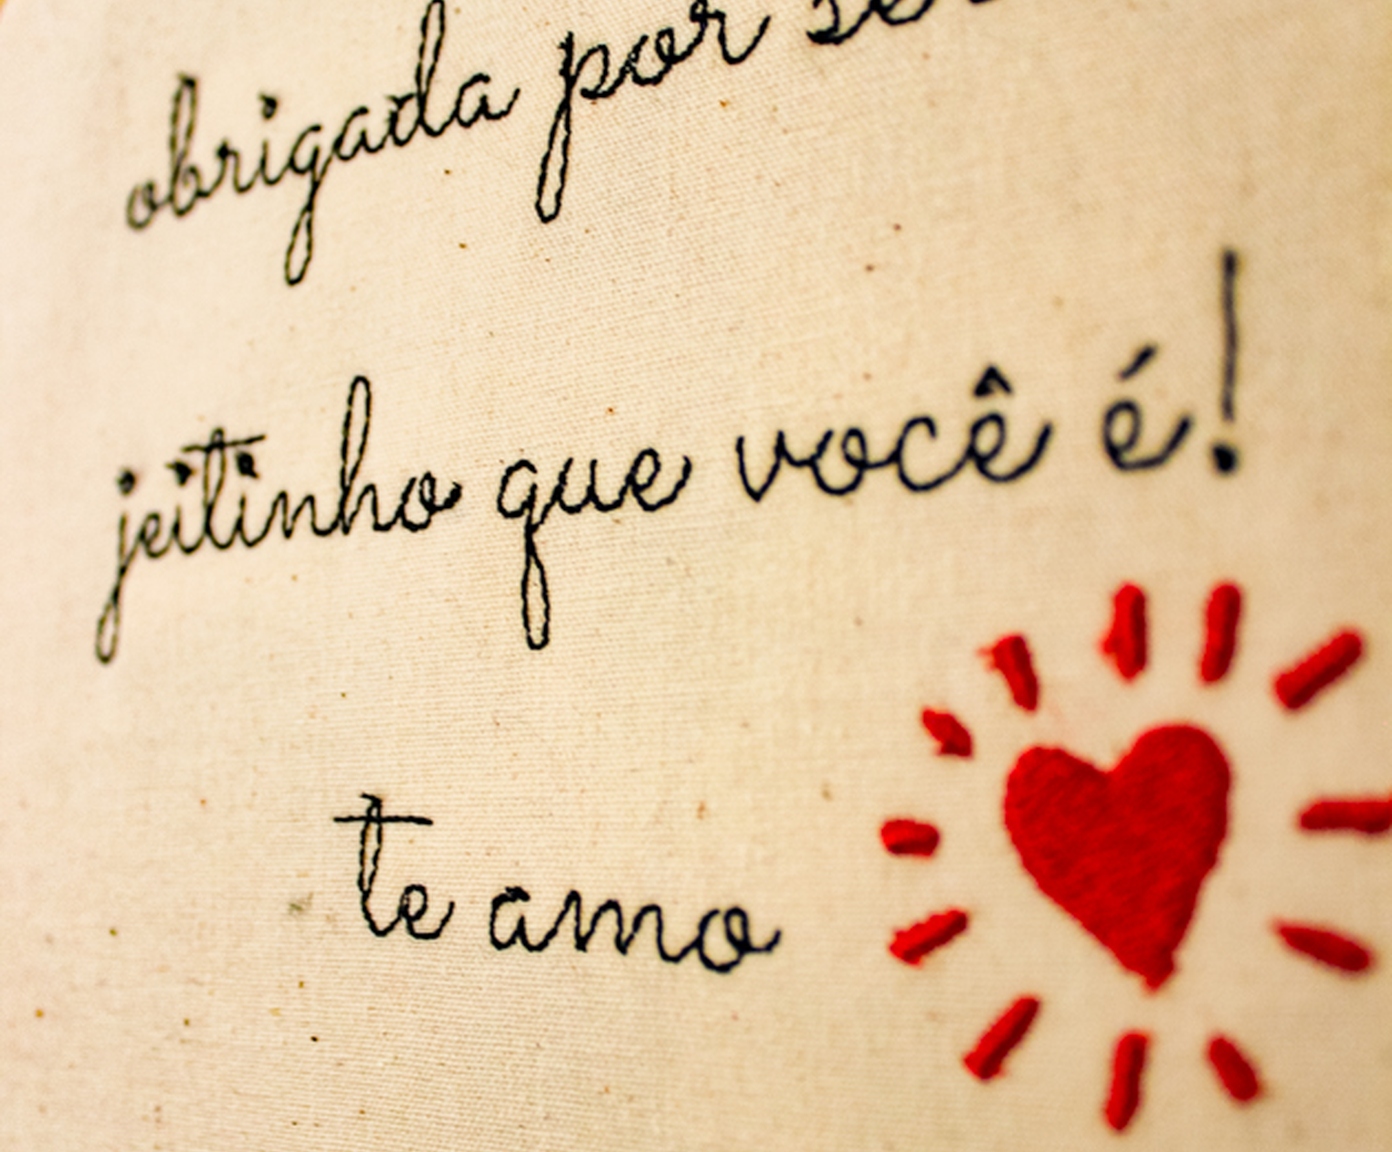 obrigada por ser
jeitinho que você é!
te amo